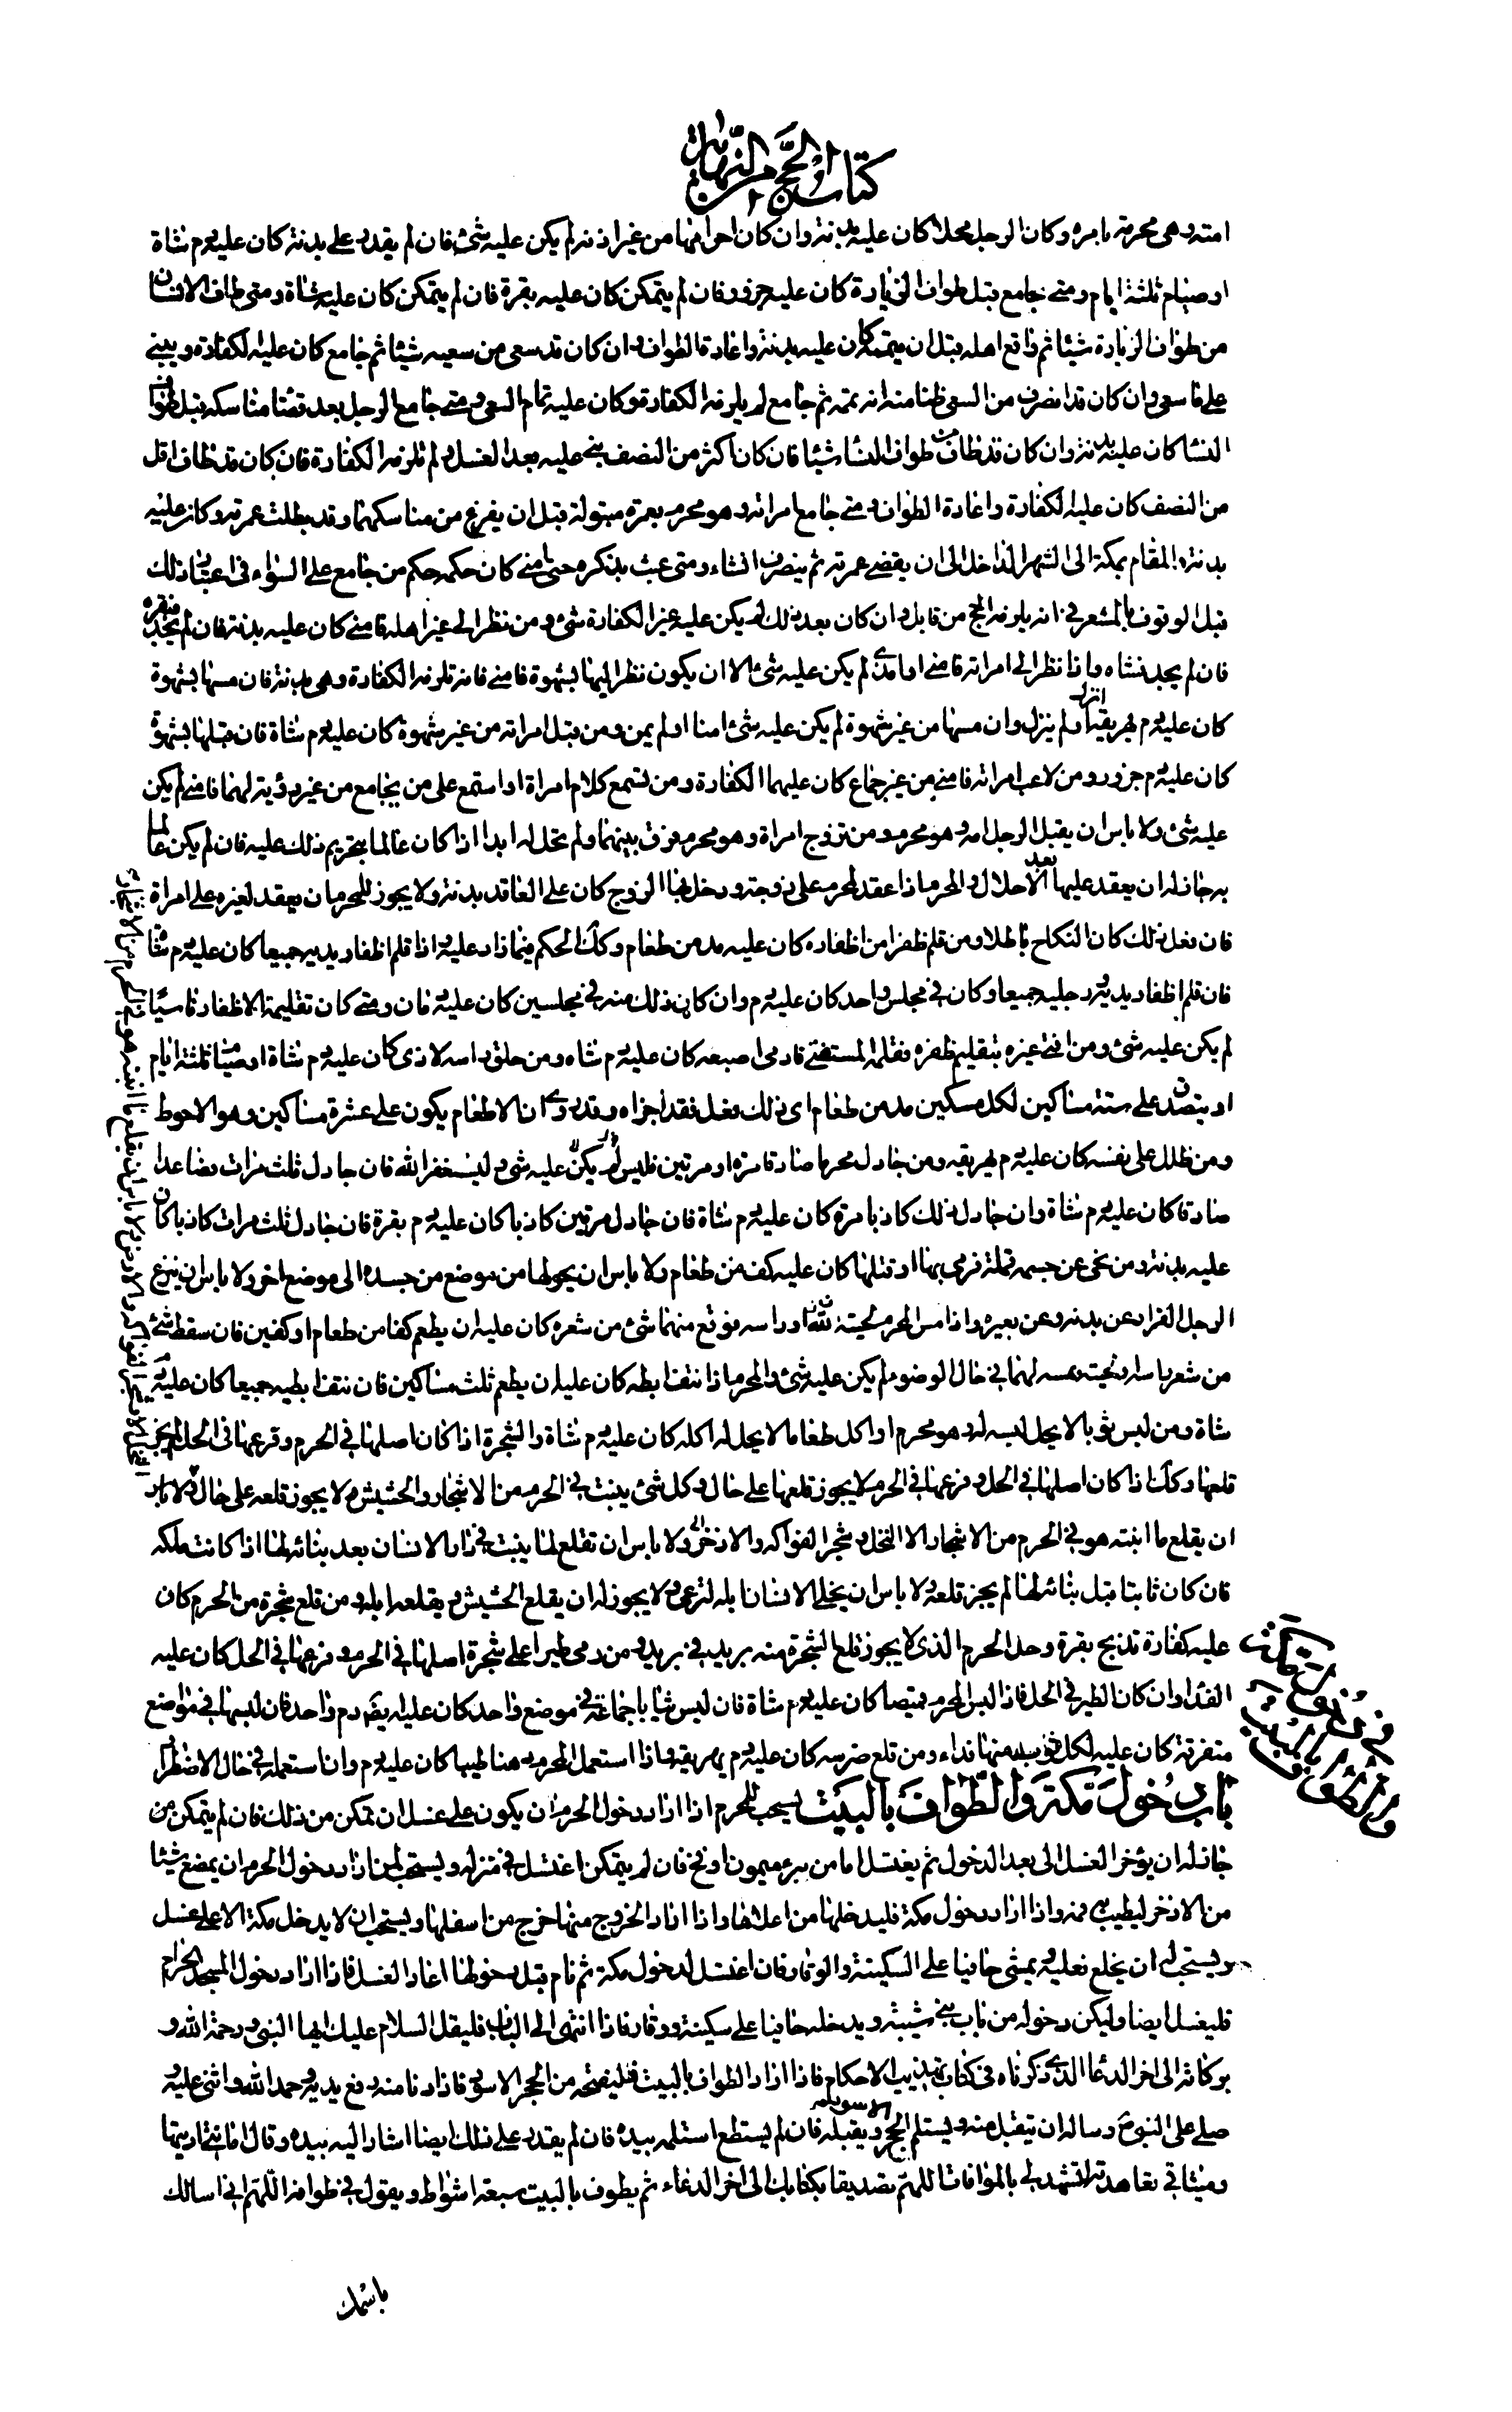 كتاب الحج من النهاية
امته وهى محرمة بامره وكان الرجل محلا كان عليه بدنة وان كان احرامها من غير اذنه لم يكن عليه شئ فان لم يقدر على بدنة كان عليه دم شاة
او صيام ثلثة ايام ومتى جامع قبل طواف الزيارة كان عليه جزور فان لم يتمكن كان عليه بقرة فان لم يتمكن كان عليه شاة ومتى طاف الانسان
من طواف الزيارة شيئا ثم واقع اهله قبل ان يتمه كان عليه بدنة واعادة الطواف وان كان قد سعى من سعيه شيئا ثم جامع كان عليه الكفارة ويبنى
على ما سعى وان كان قد انصرف من السعى ظنا منه انه تممه ثم جامع لم يلزمه الكفارة وكان عليه تمام السعى ومتى جامع الرجل بعد قضاء مناسكه قبل طواف
النساء كان عليه بدنة وان كان قد طاف من طواف النساء شيئا فان كان اكثر من النصف بنى عليه بعد الغسل ولم تلزمه الكفارة فان كان قد طاف اقل
من النصف كان عليه الكفارة واعادة الطواف ومتى جامع امراته وهو محرم بعمرة مبتولة قبل ان يفرغ من مناسكهما وقد بطلت عمرته وكان عليه
بدنة والمقام بمكة الى الشهر الداخل الى ان يقضى عمرته ثم ينصرف انشاء ومتى عبث بذكره حتى امنى كان حكمه حكم من جامع على السواء فى اعتبار ذلك
قبل الوقوف بالمشعر فى انه يلزمه الحج من قابل وان كان بعد ذلك لم يكن عليه غير الكفارة شئ ومن نظر الى غير اهله فامنى كان عليه بدنة فان لم يجد فبقرة
فان لم يجد فشاه واذا نظر الى امراته فامنى او امذى لم يكن عليه شئ الا ان يكون نظر اليها بشهوة فامنى فانه تلزمه الكفارة وهى بدنة فان مسها بشهوة
كان عليه دم يهريقه انزل او لم ينزل وان مسها من غير شهوة لم يكن عليه شئ امنا او لم يمن ومن قبل امراته من غير شهوة كان عليه دم شاة فان قبلها بشهوة
كان عليه دم جزور ومن لاعب امراته فامنى من غير جماع كان عليهما الكفارة ومن تسمع كلام امراة او استمع على من يجامع من غير رؤية لهما فامنى لم يكن
عليه شئ ولا باس ان يقبل الرجل امه وهو محرم ومن تزوج امراة وهو محرم فرق بينهما ولم تحل له ابدا اذا كان عالما بتحريم ذلك عليه فان لم يكن عالما
به جاز له ان يعقد عليها بعد الاحلال والمحرم اذا عقد لمحرم على زوجة ودخل بها الزوج كان على العاقد بدنة ولا يجوز للمحرم ان يعقد لغيره على امراة
فان فعل ذلك كان النكاح باطلا ومن قلم ظفرا من اظفاره كان عليه مد من طعام وكك الحكم فيما زاد عليه اذا قلم اظفار يديه جميعا كان عليه دم شاة
فان قلم اظفار يديه ورجليه جميعا وكان فى مجلس واحد كان عليه دم وان كان ذلك منه فى مجلسين كان عليه دمان ومتى كان تقليمه الاظفار ناسيا
لم يكن عليه شئ ومن افتى غيره بتقليم ظفره فقلمه المستفتى فادمى اصبعه كان عليه دم شاه ومن حلق راسه لاذى كان عليه دم شاة او صيام ثلثة ايام
او يتصدق على ستة مساكين لكل مسكين مد من طعام اى ذلك فعل فقد اجزاه وقد روى ان الاطعام يكون على عشرة مساكين وهو الاحوط
ومن ظلل على نفسه كان عليه دم يهريقه ومن جادل محرما صادقا مرة او مرتين فليس عليه شئ وليستغفر الله فان جادل ثلث مرات فصاعدا
صادقا كان عليه دم شاة وان جادل ذلك كاذبا مرة كان عليه دم شاة فان جادل مرتين كاذبا كان عليه دم بقرة فان جادل ثلث مرات كاذبا كان
عليه بدنة ومن نحى عن جسمه قملة فرمى بها او قتلها كان عليه كف من طعام ولا باس ان يحولها من موضع من جسده الى موضع اخر ولا باس ان ينزع
الرجل القراد عن بدنه وعن بعيره واذا مس المحرم لحيته او راسه فوقع منهما شئ من شعره كان عليه ان يطعم كفا من طعام او كفين فان سقط شئ
من شعر راسه ولحيته بمسه لهما فى حال الوضوء لم يكن عليه شئ والمحرم اذا نتف ابطه كان عليه ان يطعم ثلث مساكين فان نتف ابطيه جميعا كان عليه دم
شاة ومن لبس ثوبا لا يحل لبسه له وهو محرم او اكل طعاما لا يحل له اكله كان عليه دم شاة والشجرة اذا كان اصلها فى الحرم وفرعها فى الحل لم يجز
قلعها وكك اذا كان اصلها فى الحل وفرعها فى الحرم لا يجوز قلعها على حال وكل شئ ينبت فى الحرم من الاشجار والحشيش ولا يجوز قلعه على حال ولا باس
ان يقلع ما انبته هو فى الحرم من الاشجار الا النخل وشجر الفواكه والاذخر ولا باس ان تقلع لما ينبت فى دار الانسان بعد بنائه لها اذا كانت ملكه
فان كان نابتا قبل بنائه لها لم يجز قلعه ولا باس ان يخلى الانسان ابله لترعى ولا يجوز له ان يقلع الحشيش ويقلعه ابله ومن قلع شجرة من الحرم كان
عليه كفارة تذبح بقرة وحد الحرم الذى لا يجوز قلع الشجرة منه بريد فى بريد ومن رمى طيرا على شجرة اصلها فى الحرم وفرعها فى الحل كان عليه
الفداء وان كان الطير فى الحل فاذا لبس المحرم قميصا كان عليه دم شاة فان لبس ثيابا جماعة فى موضع واحد كان عليه دم واحد فان لبسها فى مواضع
متفرقة كان عليه لكل ثوب منها فداء ومن قلع ضرسه كان عليه دم يهريقه واذا استعمل المحرم دهنا طيبا كان عليه دم وان استعمله فى حال الاضطرار
باب دخول مكة والطواف بالبيت يستحب للمحرم اذا اراد دخول الحرم ان يكون على غسل ان تمكن من ذلك فان لم يتمكن من
جاز له ان يؤخر الغسل الى بعد الدخول ثم يغتسل اما من بير ميمون او فخ فان لم يتمكن اغتسل فى منزله ويستحب لمن اراد دخول الحرم ان يمضغ شيئا
من الاذخر ليطيب به فمه واذا اراد دخول مكة فليدخلها من اعلاها واذا اراد الخروج منها خرج من اسفلها ويستحب ان لا يدخل مكة الا على غسل
ويستحب له ان يخلع نعليه ويمشى حافيا على السكينة والوقار فان اغتسل لدخول مكة ثم نام قبل دخولها اعاد الغسل فاذا اراد دخول المسجد الحرام
فليغسل ايضا وليكن دخوله من باب بنى شيبة ويدخله حافيا على سكينة ووقار فاذا انتهى الى الباب فليقل السلام عليك ايها النبى ورحمة الله و
بركاته الى اخر الدعا الذى ذكرناه فى كتاب تهذيب الاحكام فاذا اراد الطواف بالبيت فليفتحه من الحجر الاسود فاذا دنا منه رفع يديه وحمد الله واثنى عليه و
صلى على النبى ص وساله ان يتقبل منه ويستلم الحجر الاسود ويقبله فان لم يستطع استلمه بيده فان لم يقدر على ذلك ايضا اشار اليه بيده وقال امانتى اديتها
وميثاقى تعاهدته لتشهد لى بالموافاة اللهم تصديقا بكتابك الى اخر الدعاء ثم يطوف بالبيت سبعة اشواط ويقول فى طوافه اللهم انى اسالك
باسمك
فى دخول مكة
والطواف بالبيت